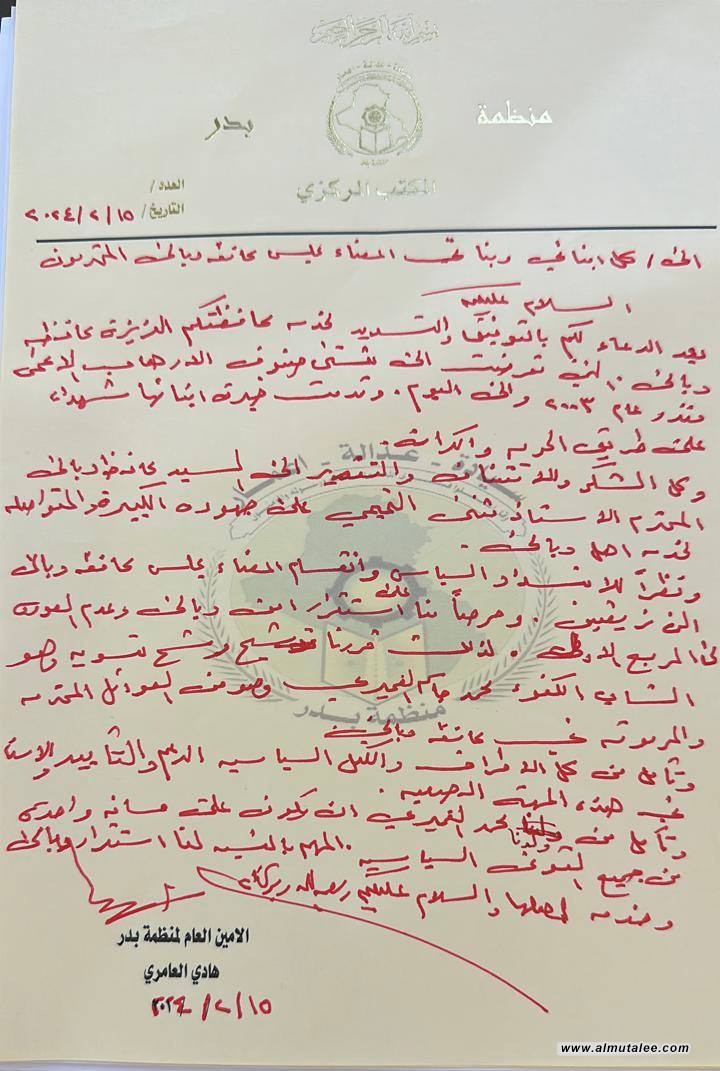 بسم الله الرحمن الرحيم
منظمة بدر
المكتب المركزي
العدد /
التاريخ / ٢٠٢٤/٢/١٥
الى / كل ابنائي وبناتي اعضاء مجلس محافظة ديالى المحترمون
السلام عليكم
بعد الدعاء لكم بالتوفيق والتسديد لخدمة محافظتكم العزيزة محافظة
ديالى . التي تعرضت الى شتى صنوف الارهاب الاعمى
منذ عام ٢٠٠٣ والى اليوم . وقدمت خيرة ابنائها شهداء
على طريق الحرية والكرامة .
وكل الشكر والامتنان والتقدير الى السيد محافظ ديالى
المحترم الاستاذ مثنى التميمي على جهوده الكبيرة والمتواصلة
لخدمة اهل ديالى .
ونظراً للانسداد السياسي وانقسام اعضاء مجلس محافظة ديالى
الى فريقين . وحرصاً منا على استقرار امن ديالى وعدم العودة
الى المربع الاول . لذلك قررنا ترشيح مرشح تسوية وهو
الشاب الكفوء محمد جاسم العميري وهو من العوائل المحترمة
والمرموقة في محافظة ديالى
ونأمل من كل الاطراف والكتل السياسية الدعم والتأييد والاسناد
في هذه المهمة الصعبة .
ونأمل من ولدنا محمد العميري ان يكون على مسافة واحدة
من جميع القوى السياسية . المهم بالنسبة لنا استقرار ديالى
وخدمة اهلها والسلام عليكم ورحمة الله وبركاته
الامين العام لمنظمة بدر
هادي العامري
٢٠٢٤/٢/١٥
منظمة بدر
www.almutalee.com